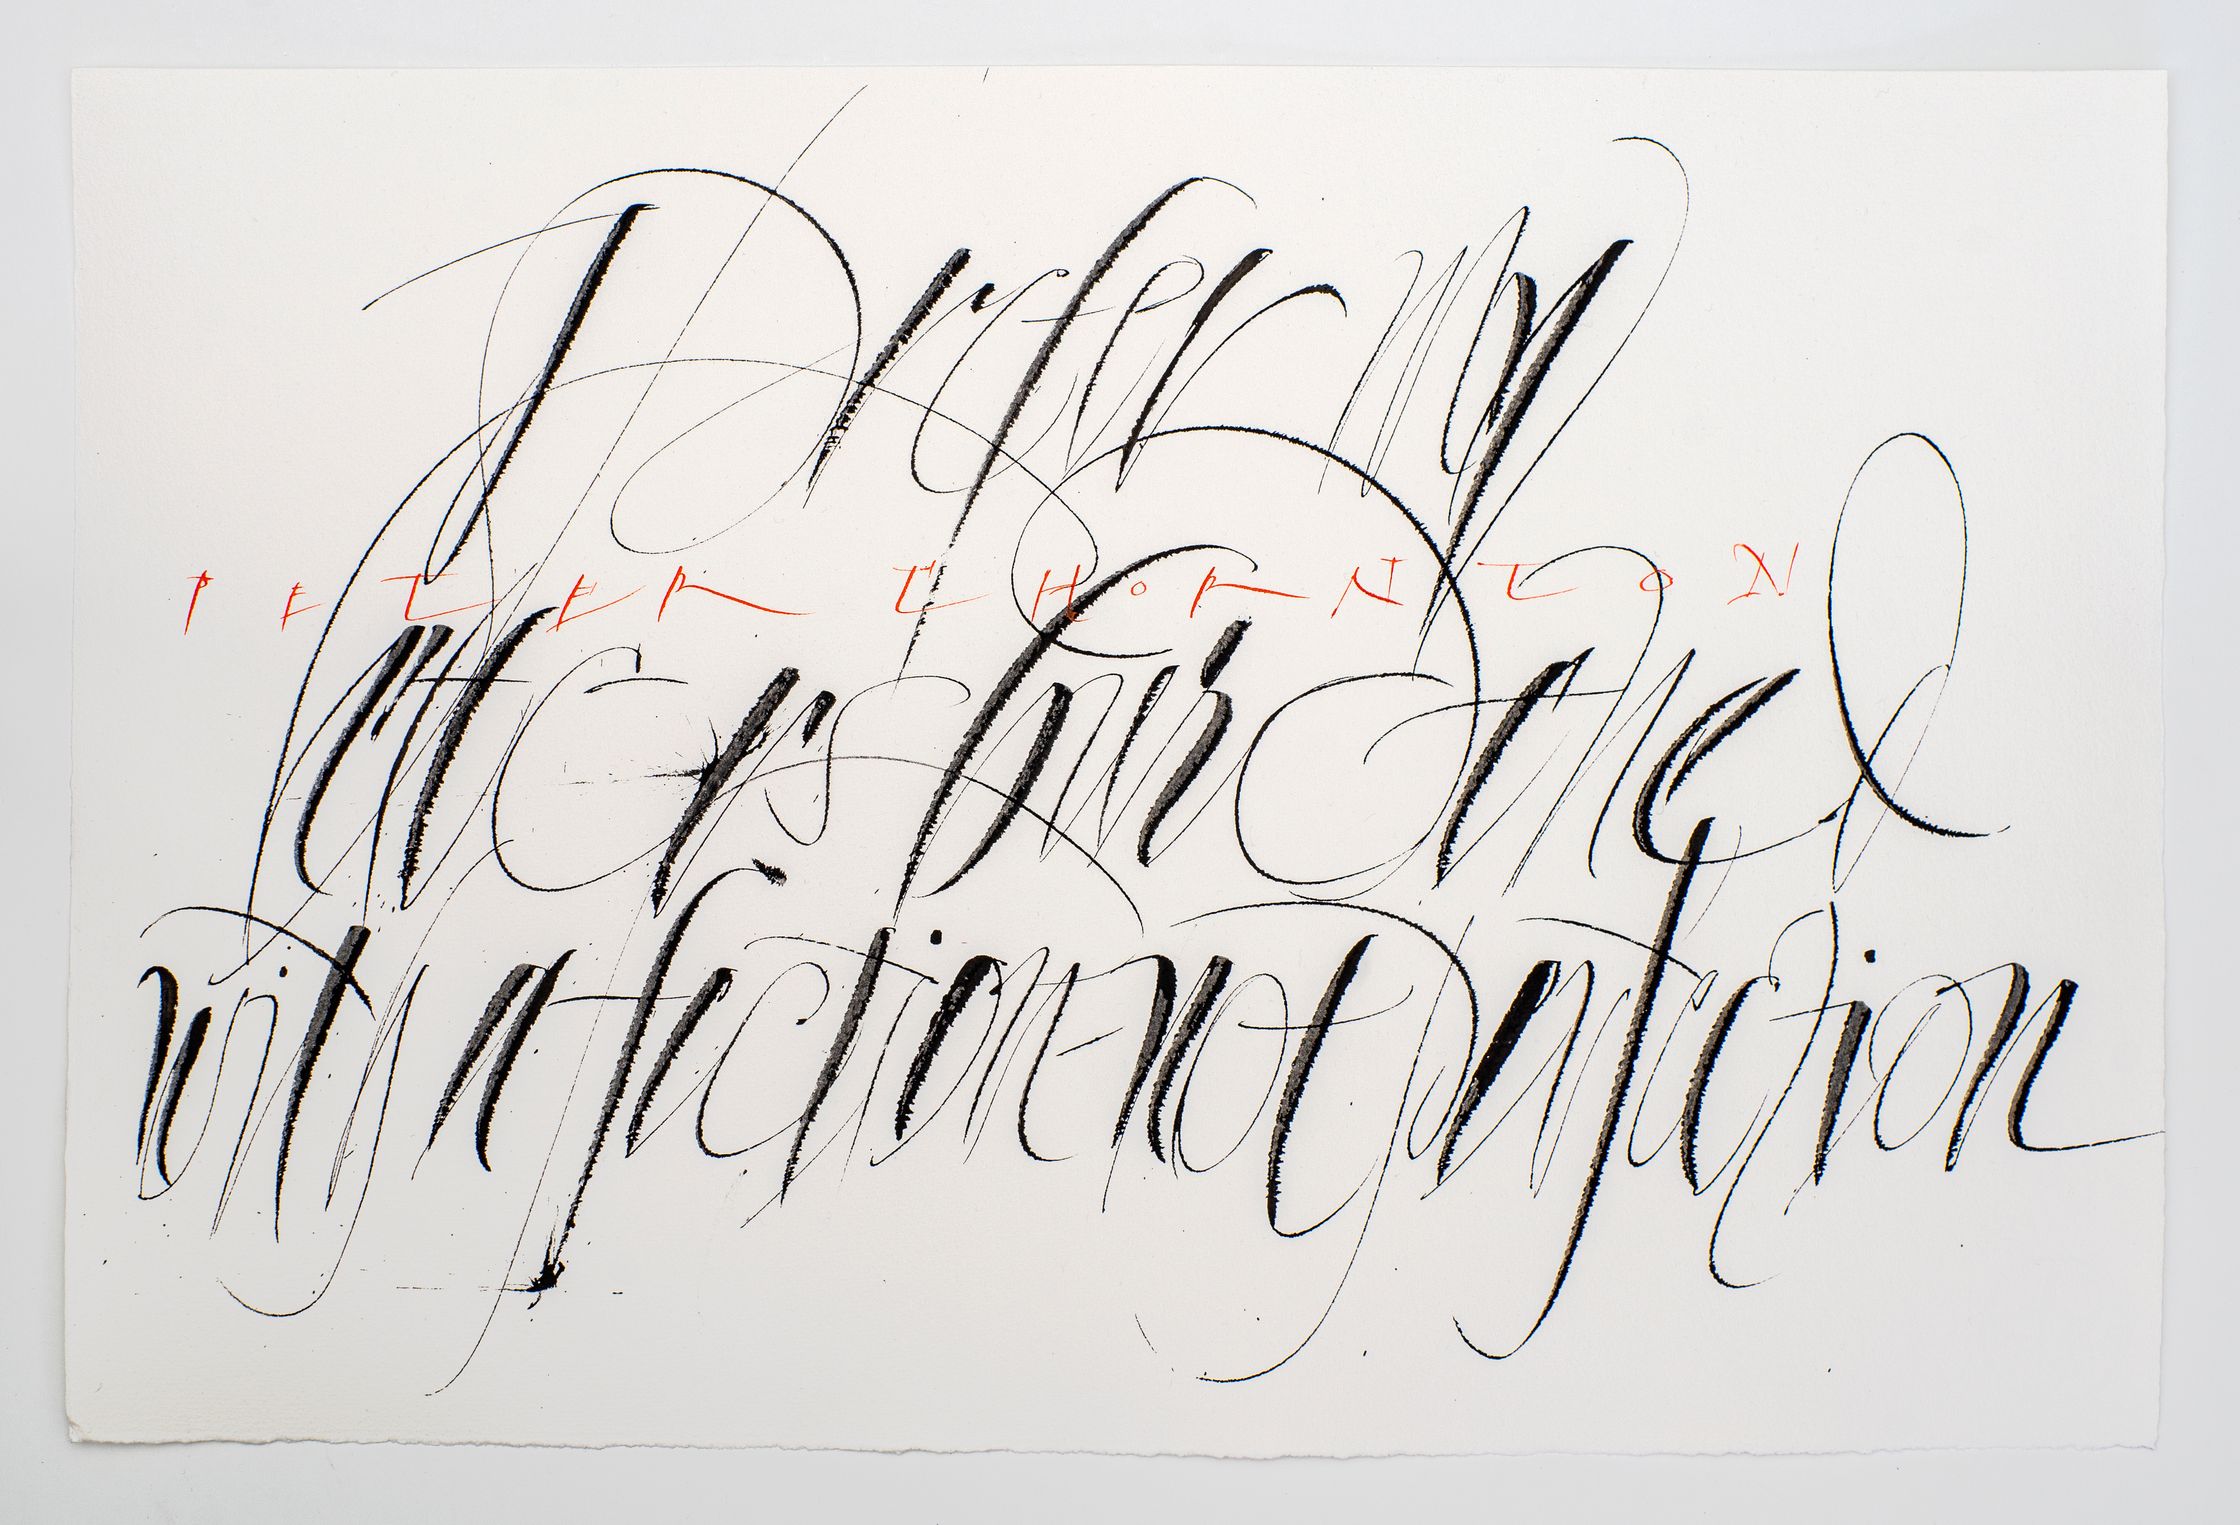 I Prefer my
PETER THORNTON
letters
with affection - not perfection